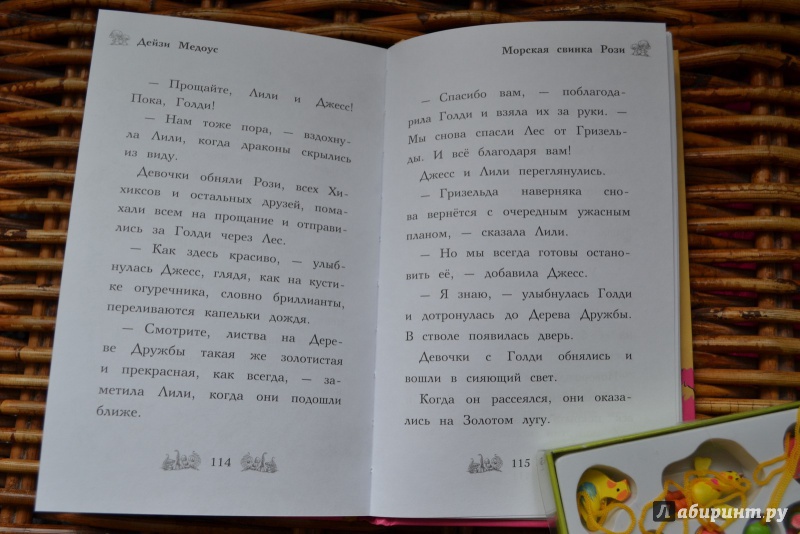 Дейзи Медоус
— Прощайте, Лили и Джесс!
Пока, Голди!
— Нам тоже пора, — вздохну-
ла Лили, когда драконы скрылись
из виду.
Девочки обняли Рози, всех Хи-
хиксов и остальных друзей, пома-
хали всем на прощание и отправи-
лись за Голди через Лес.
— Как здесь красиво, — улыб-
нулась Джесс, глядя, как на кусти-
ке огуречника, словно бриллианты,
переливаются капельки дождя.
— Смотрите, листва на Дере-
ве Дружбы такая же золотистая
и прекрасная, как всегда, — за-
метила Лили, когда они подошли
ближе.
114
Морская свинка Рози
— Спасибо вам, — поблагода-
рила Голди и взяла их за руки. —
Мы снова спасли Лес от Гризель-
ды. И всё благодаря вам!
Джесс и Лили переглянулись.
— Гризельда наверняка сно-
ва вернётся с очередным ужасным
планом, — сказала Лили.
— Но мы всегда готовы остано-
вить её, — добавила Джесс.
— Я знаю, — улыбнулась Голди
и дотронулась до Дерева Дружбы.
В стволе появилась дверь.
Девочки с Голди обнялись и
вошли в сияющий свет.
Когда он рассеялся, они оказа-
лись на Золотом лугу.
115
Лабиринт.ру